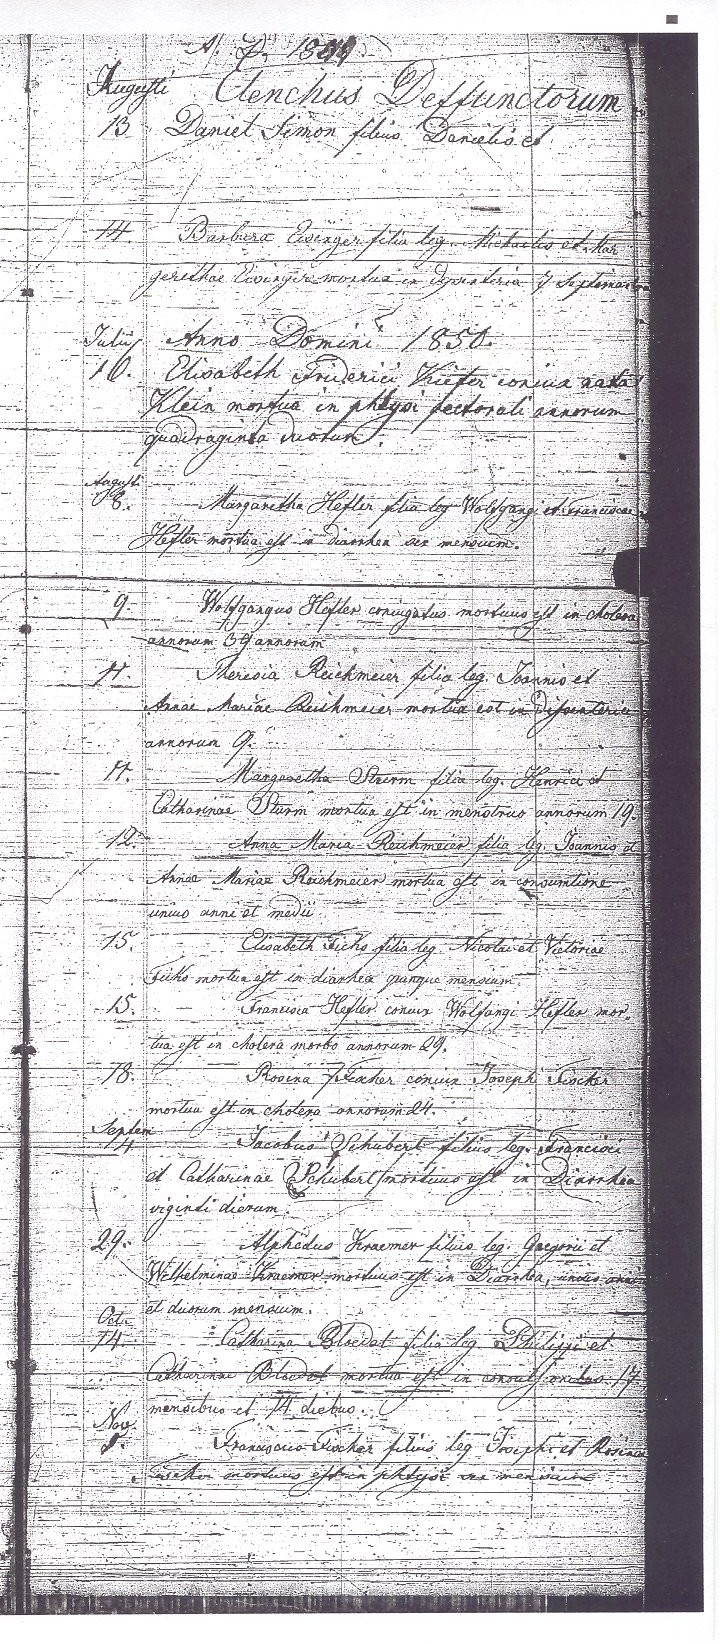 A. D. 1849
Augusti Elenchus Deffunctorum
13 Daniel Simon filius Danielis et
14. Barbara Eisinger filia leg. Michaelis et Mar
gerethae Eisinger mortua in dysenteria 7
Julius Anno Domini 1850.
10. Elisabeth Friderici Kiefer coniux nata
Klein mortua in phtysi pectorali annorum
quadraginta duorum.
Augusti
8. Margaretha Hefler filia leg Wolfgangi et Franciscae
Hefler mortua est in diarrhea sex mensium.
9. Wolfgangus Hefler coniugatus mortuus est in cholera
annorum 39 annorum
11. Theresia Reichmeier filia leg. Joannis et
Annae Mariae Reichmeier mortua est in dissenteria
annorum 9.
11. Margaretha Sturm filia leg. Henrici et
Catharinae Sturm mortua est in menstruo annorum 19.
12. Anna Maria Reichmeier filia leg. Joannis et
Annae Mariae Reichmeier mortua est in consumtione
unius anni et medii
15. Elisabeth Ficks filia leg. Nicolai et Victoriae
Ficks mortua est in diarrhea quinque mensium.
15. Francisia Hefler coniux Wolfangi Hefler mor.
tua est in cholera morbo annorum 29.
18. Rosina Fischer coniux Joseph Fischer
mortua est in cholera annorum 24.
Septem
14 Jacobus Schubert filius leg. Francisci
et Catharinae Schubert mortuus est in Diarrhea
viginti dierum.
29. Alphedus Kraemer filius leg. Gregorii et
Welhelminae Kraemer mortuus est in Diarrhea, unius anni
et duorum mensium.
Octr.
14. Catharina Bloedat filia leg Philippi et
Catharinae Bloedat mortua est in 17
mensibus et 14 diebus.
Nov.
Franciscus Fischer filius leg Josephi et Rosinae
Fischer mortuus est in phtysi sex mensium